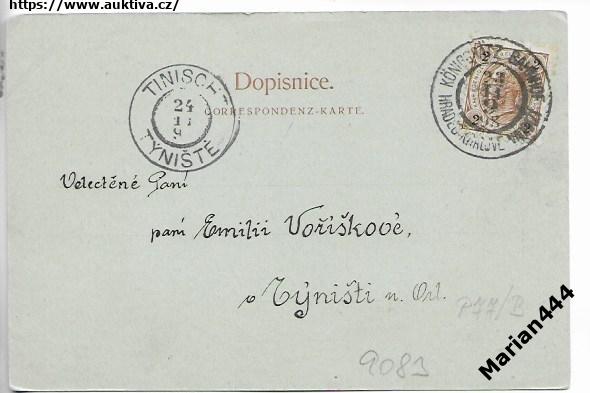 https://www.auktiva.cz/
Dopisnice.
CORRESPONDENZ-KARTE.
TINISCHT
24
11
9
TÝNIŠTĚ
KÖNIGGRÄTZ BAHNHOF
HRADEC-KRÁLOVÉ
2
2
Velectěné Paní
paní Emilii Voříškové,
v Týništi n. Orl.
P77/B
9083
Marian444